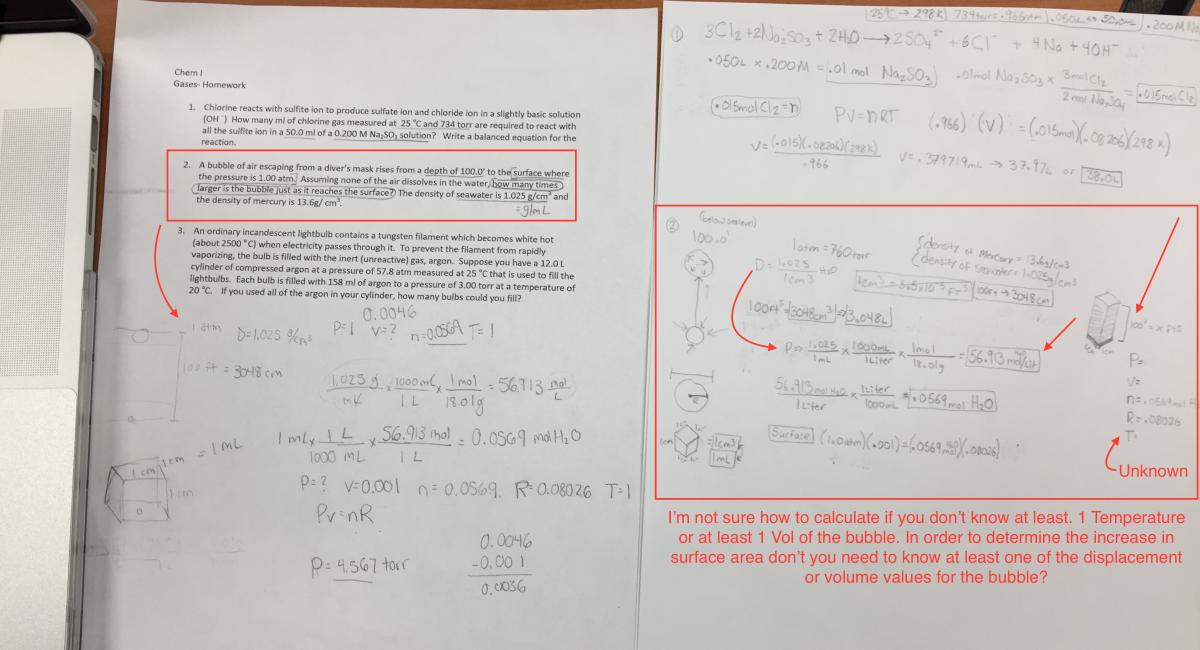 Chem I
Gases- Homework
1. Chlorine reacts with sulfite ion to produce sulfate ion and chloride ion in a slightly basic solution
(OH⁻) How many ml of chlorine gas measured at 25 °C and 734 torr are required to react with
all the sulfite ion in a 50.0 ml of a 0.200 M Na₂SO₃ solution? Write a balanced equation for the
reaction.
2. A bubble of air escaping from a diver's mask rises from a depth of 100.0' to the surface where
the pressure is 1.00 atm. Assuming none of the air dissolves in the water, how many times
larger is the bubble just as it reaches the surface? The density of seawater is 1.025 g/cm³ and
the density of mercury is 13.6g/ cm³.
=g/mL
3. An ordinary incandescent lightbulb contains a tungsten filament which becomes white hot
(about 2500 °C) when electricity passes through it. To prevent the filament from rapidly
vaporizing, the bulb is filled with the inert (unreactive) gas, argon. Suppose you have a 12.0 L
cylinder of compressed argon at a pressure of 57.8 atm measured at 25 °C that is used to fill the
lightbulbs. Each bulb is filled with 158 ml of argon to a pressure of 3.00 torr at a temperature of
20 °C. If you used all of the argon in your cylinder, how many bulbs could you fill?
0.0046
1 atm D=1.025 g/cm³ P=1 V=? n=0.0569 T=1
100 ft = 3048 cm
1.025 g / mL × 1000 mL / 1 L × 1 mol / 18.01g = 56.913 mol/L
1 mL × 1 L / 1000 mL × 56.913 mol / 1 L = 0.0569 mol H₂O
1cm 1cm = 1mL
1cm
P=? V=0.001 n=0.0569. R=0.08026 T=1
PV=nR
P=4.567 torr
0.0046
-0.001
0.0036
25°C → 298K 734torr=.966atm .050L ↔ 50.0mL .200M Na
① 3Cl₂+2Na₂SO₃+2H₂O → 2SO₄²⁻ + 6Cl⁻ + 4Na + 4OH⁻
.050L × .200M = .01 mol Na₂SO₃ .01mol Na₂SO₃ × 3molCl₂ / 2mol Na₂SO₄ = .015molCl₂
.015molCl₂=n PV=nRT (.966)(V)=(.015mol)(.08206)(298K)
V=(.015)(.08206)(298K) / .966 V=.379719mL → 37.97L or 38.0L
② (below sea level)
100.0'
1atm=760torr
density of Mercury = 13.6g/cm³
density of seawater = 1.025g/cm³
D=1.025 / 1cm³ H₂O
1cm³=3.5x10⁻⁵ FT³ 100ft→3048cm
100ft³=3048cm³ → 3.048L
D⇒ 1.025 / 1mL × 1000mL / 1Liter × 1mol / 18.01g = 56.913 mol/Lit
100'=x ft³
1cm 1cm
56.913 mol H₂O / 1Liter × 1Liter / 1000mL = .0569mol H₂O
R
1cm =1cm³
1mL
Surface (1.0atm)(.001)=(.0569mol)(.08026)
P=
V=
n=.0569mol H
R=.08026
T=
Unknown
I'm not sure how to calculate if you don't know at least. 1 Temperature
or at least 1 Vol of the bubble. In order to determine the increase in
surface area don't you need to know at least one of the displacement
or volume values for the bubble?